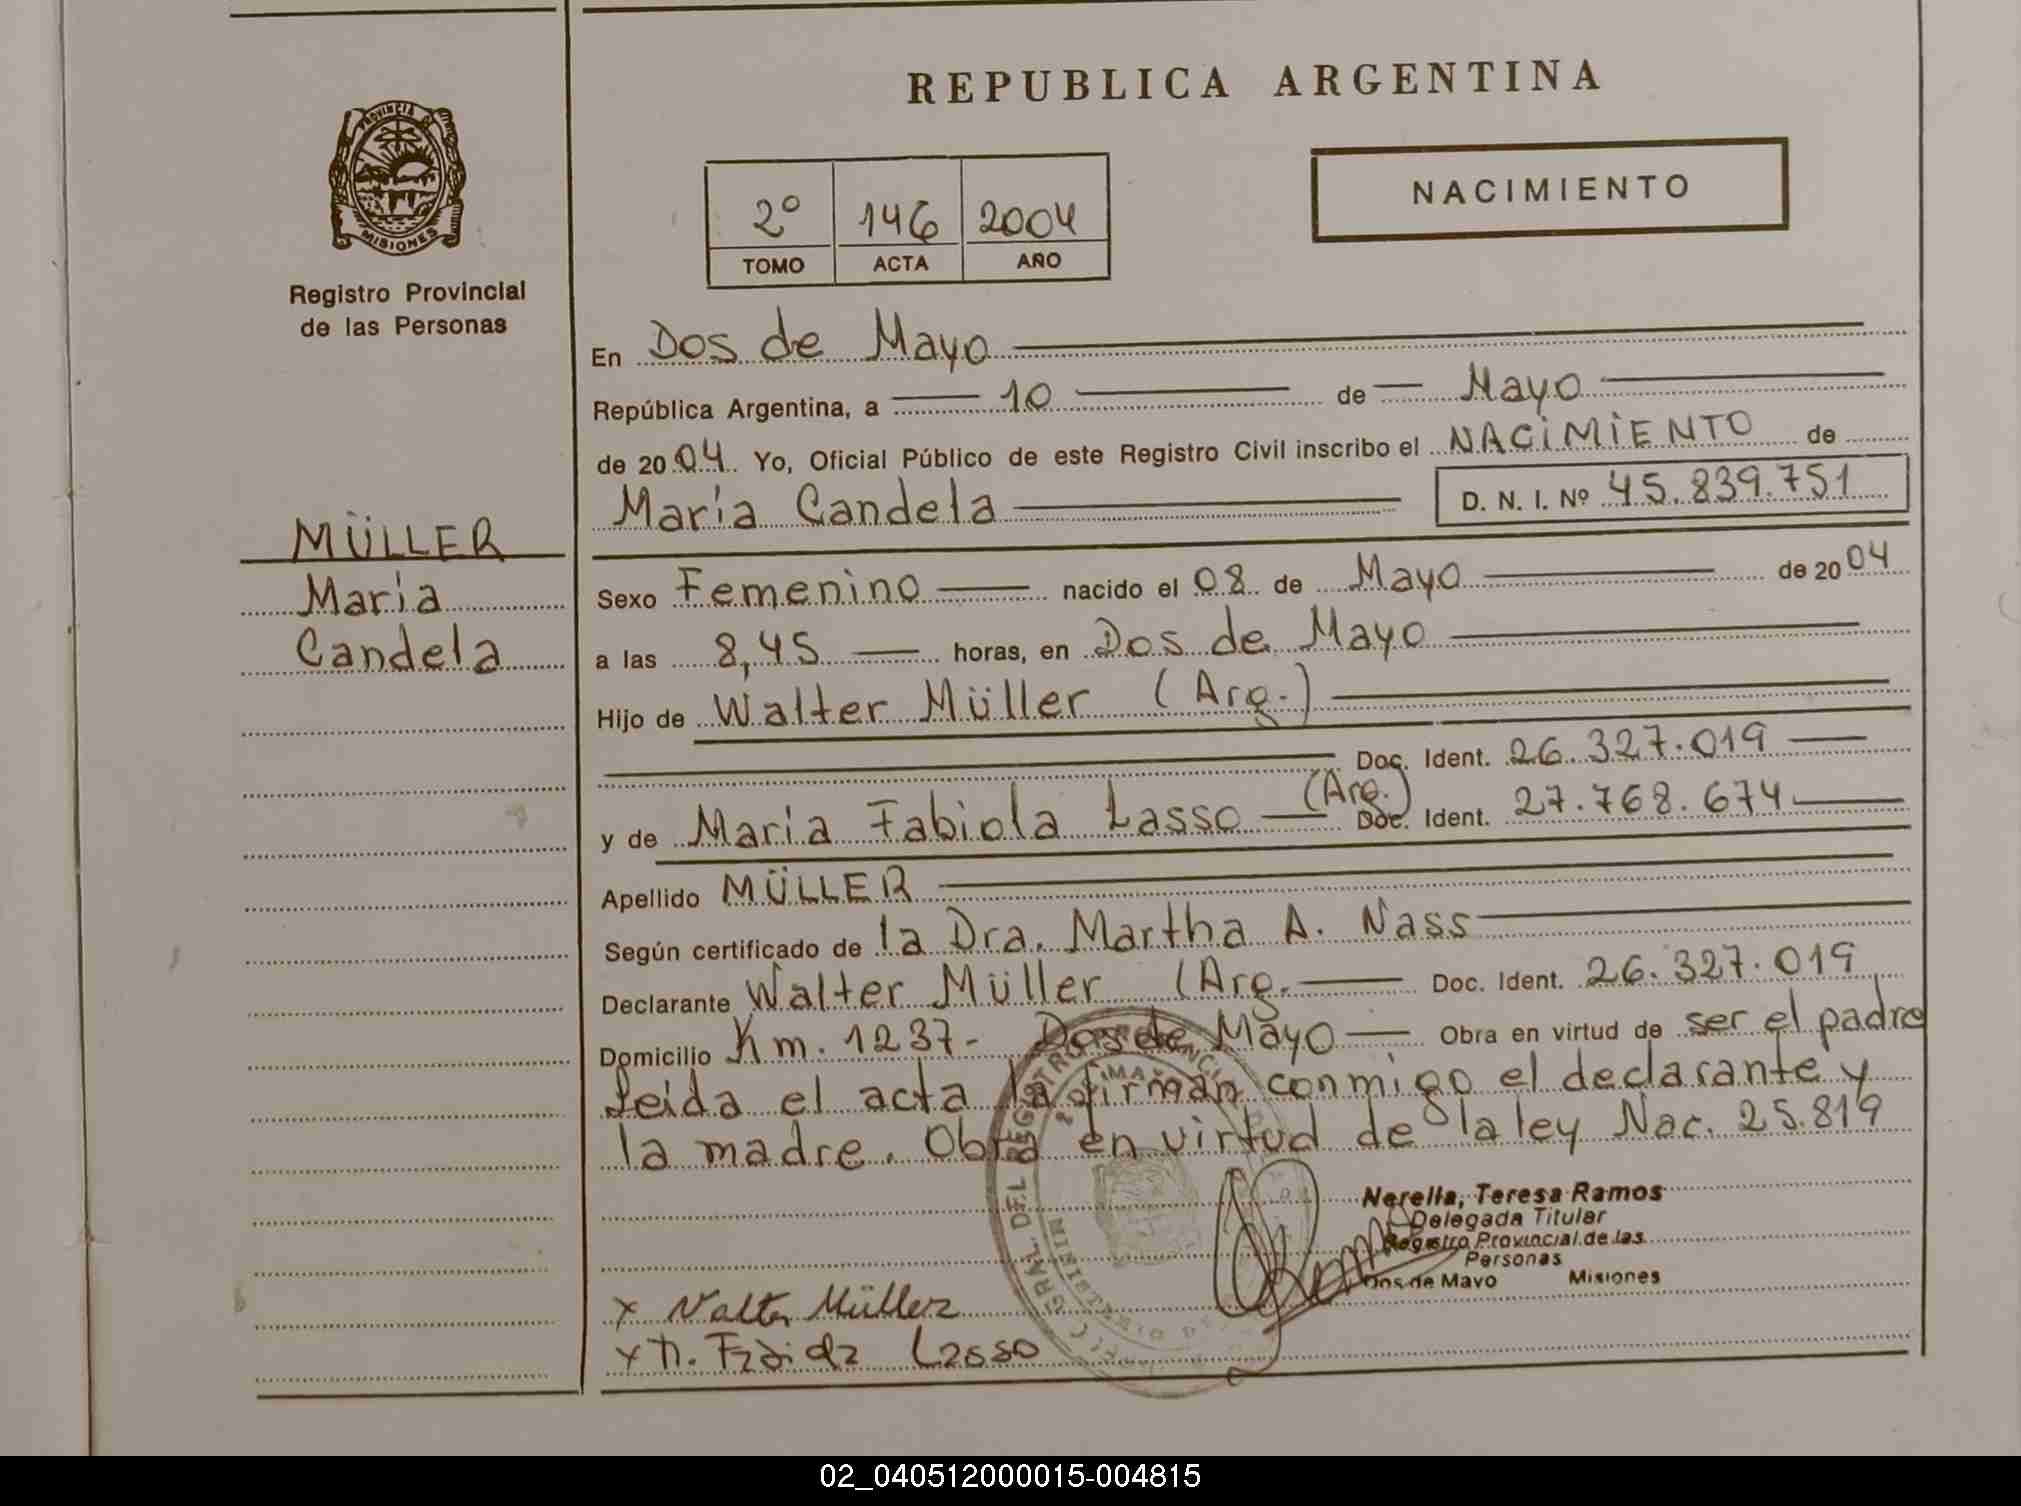 REPUBLICA ARGENTINA
PROVINCIA DE
MISIONES
Registro Provincial
de las Personas
2º 146 2004
TOMO ACTA AÑO
NACIMIENTO
MÜLLER
María
Candela
En Dos de Mayo
República Argentina, a 10 de Mayo
de 2004. Yo, Oficial Público de este Registro Civil inscribo el NACIMIENTO de
María Candela D. N. I. Nº 45.839.751
Sexo Femenino nacido el 08 de Mayo de 2004
a las 8,45 horas, en Dos de Mayo
Hijo de Walter Müller (Arg.)
Doc. Ident. 26.327.019
y de María Fabiola Lasso (Arg.) Doc. Ident. 27.768.674
Apellido MÜLLER
Según certificado de la Dra. Martha A. Nass
Declarante Walter Müller (Arg. Doc. Ident. 26.327.019
Domicilio Km. 1237- Dos de Mayo Obra en virtud de ser el padre
Leida el acta la firman conmigo el declarante y
la madre. Obra en virtud de la ley Nac. 25.819
Nerella, Teresa Ramos
Delegada Titular
Registro Provincial de las
Personas
Dos de Mayo Misiones
x Walter Müller
x M. Fabiola Lasso
02_040512000015-004815